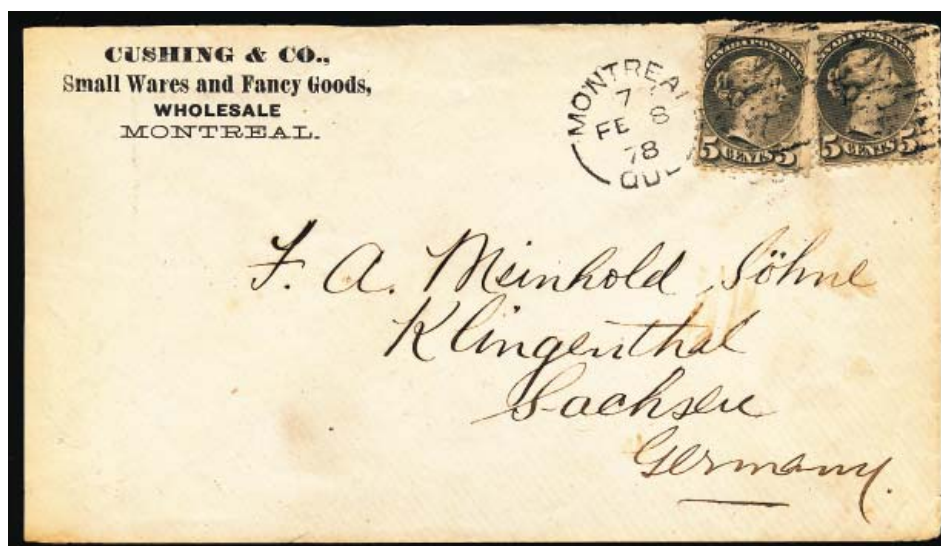 CUSHING & CO.,
Small Wares and Fancy Goods,
WHOLESALE
MONTREAL.
MONTREAL
7
FE 8
78
QUE
CANADA POSTAGE
5 CENTS 5
CANADA POSTAGE
5 CENTS 5
F. A. Meinhold Söhne
Klingenthal
Sachsen
Germany.